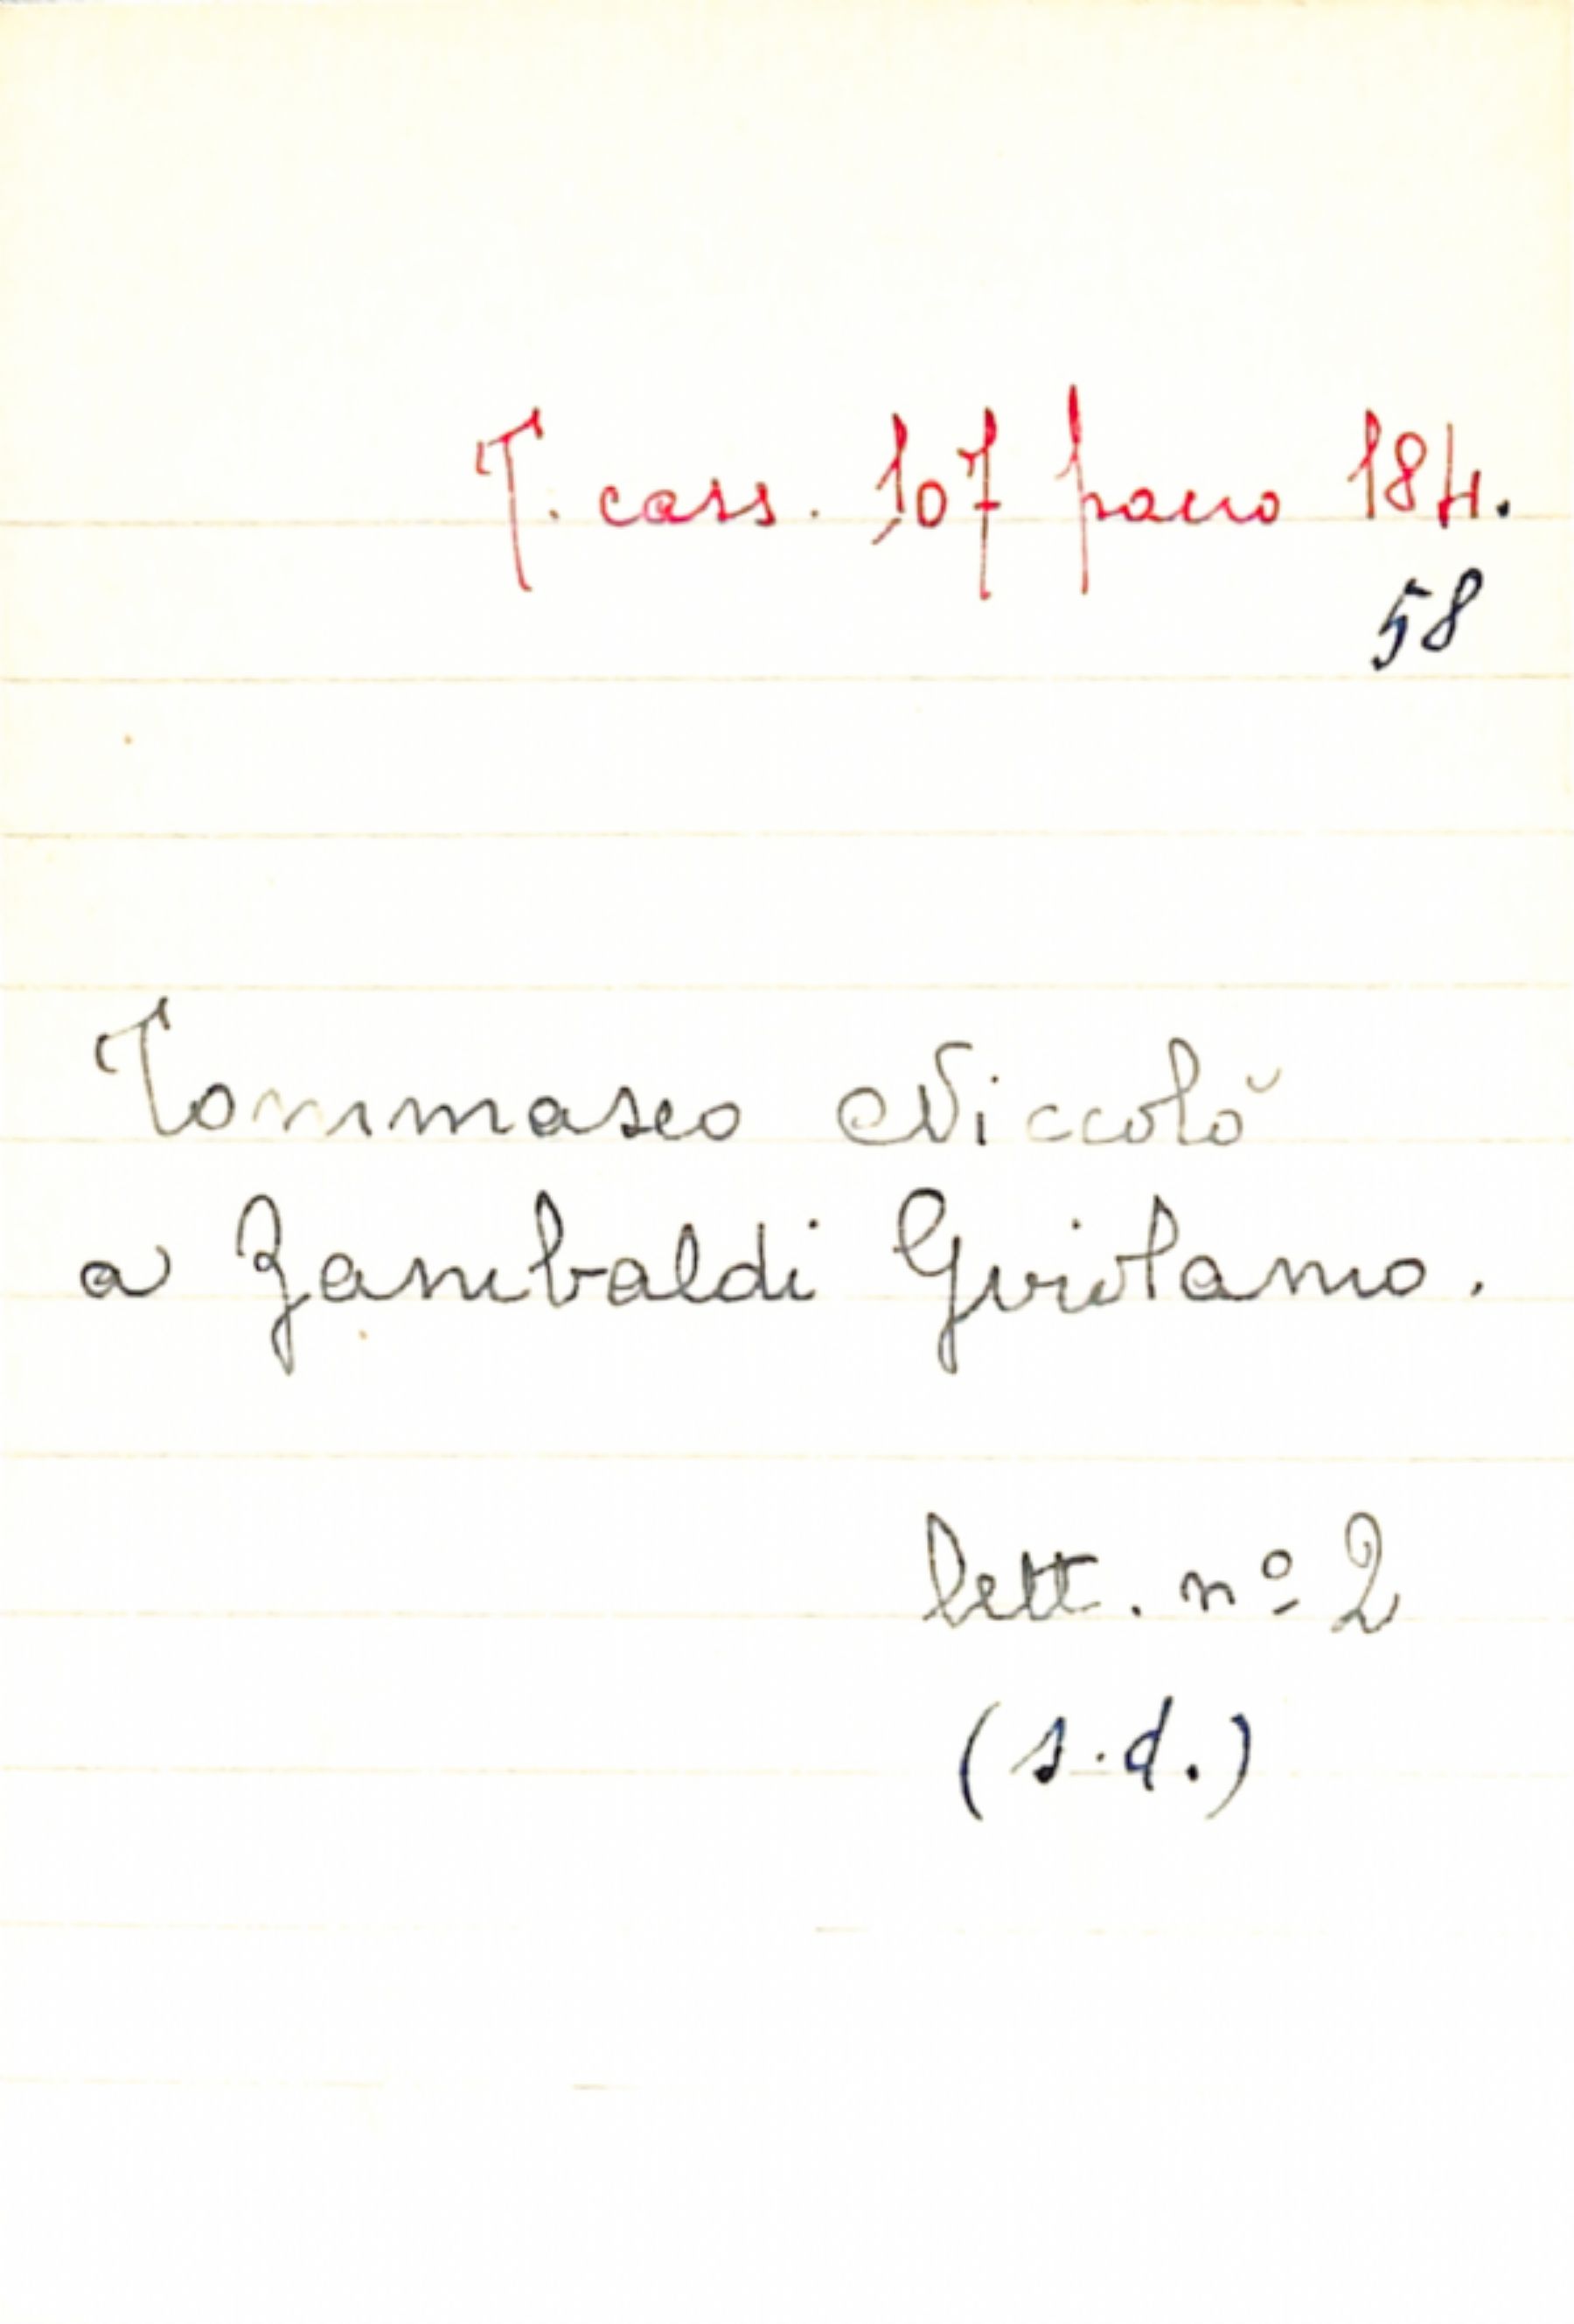 T. cass. 107 pacco 184.
58
Tommaseo Niccolò
a Zambaldi Girolamo.
lett. nº 2
(s.d.)